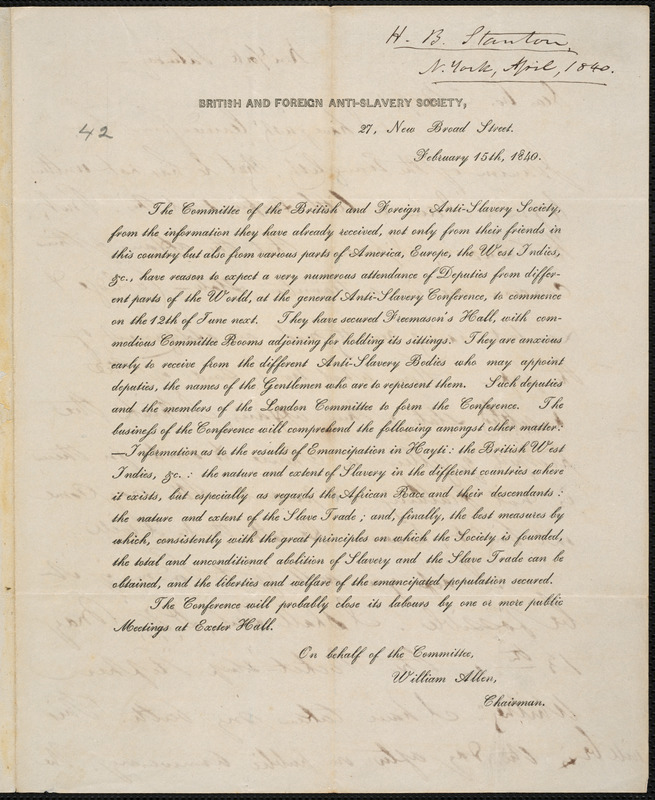 H. B. Stanton,
N. York, April, 1840.
BRITISH AND FOREIGN ANTI-SLAVERY SOCIETY,
42
27, New Broad Street.
February 15th, 1840.
The Committee of the British and Foreign Anti-Slavery Society,
from the information they have already received, not only from their friends in
this country but also from various parts of America, Europe, the West Indies,
&c., have reason to expect a very numerous attendance of Deputies from differ-
ent parts of the World, at the general Anti-Slavery Conference, to commence
on the 12th of June next. They have secured Freemason's Hall, with com-
modious Committee Rooms adjoining for holding its sittings. They are anxious
early to receive from the different Anti-Slavery Bodies who may appoint
deputies, the names of the Gentlemen who are to represent them. Such deputies
and the members of the London Committee to form the Conference. The
businefs of the Conference will comprehend the following amongst other matter:
—Information as to the results of Emancipation in Hayti: the British West
Indies, &c.: the nature and extent of Slavery in the different countries where
it exists, but especially as regards the African Race and their descendants:
the nature and extent of the Slave Trade; and, finally, the best measures by
which, consistently with the great principles on which the Society is founded,
the total and unconditional abolition of Slavery and the Slave Trade can be
obtained, and the liberties and welfare of the emancipated population secured.
The Conference will probably close its labours by one or more public
Meetings at Exeter Hall.
On behalf of the Committee,
William Allen,
Chairman.